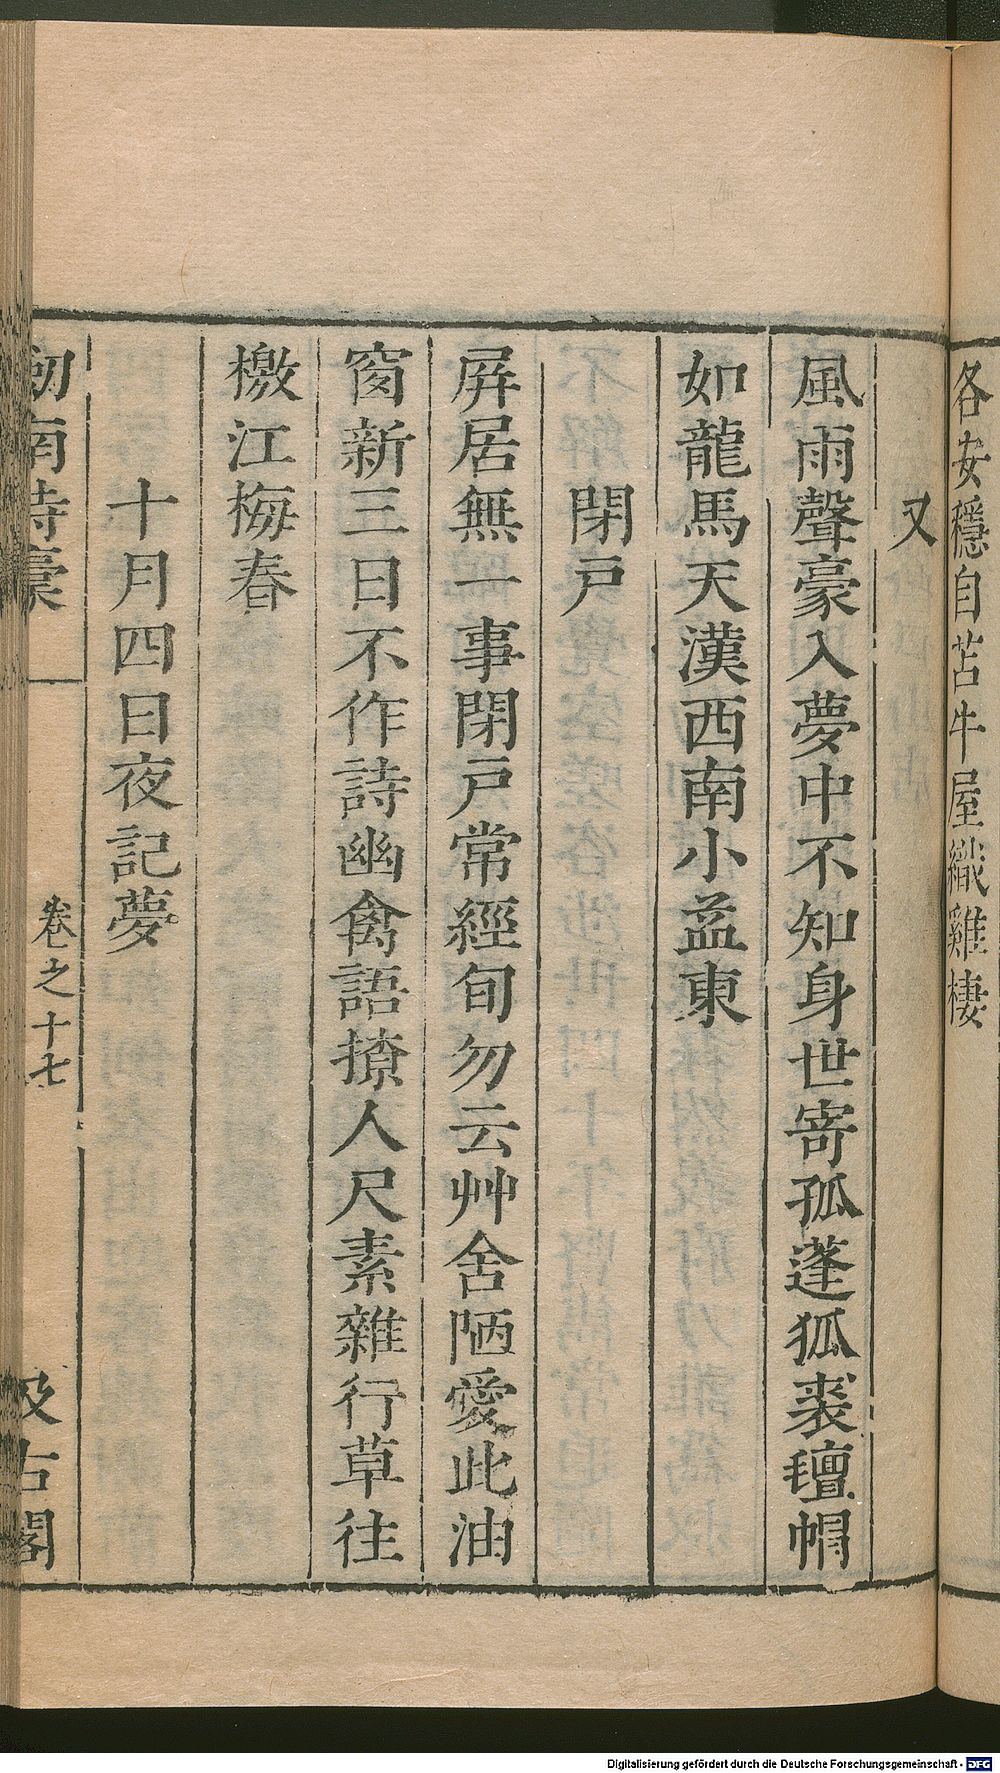 各安穩自苫牛屋織雞棲
又
風雨聲豪入夢中不知身世寄孤蓬狐裘氊帽
如龍馬天漢西南小益東
閉戸
屏居無一事閉戸常經旬勿云艸舍陋愛此油
窗新三日不作詩幽禽語撩人尺素雜行草往
檄江梅春
十月四日夜記夢
劒南詩稾
卷之十七
汲古閣
Digitalisierung gefördert durch die Deutsche Forschungsgemeinschaft - DFG